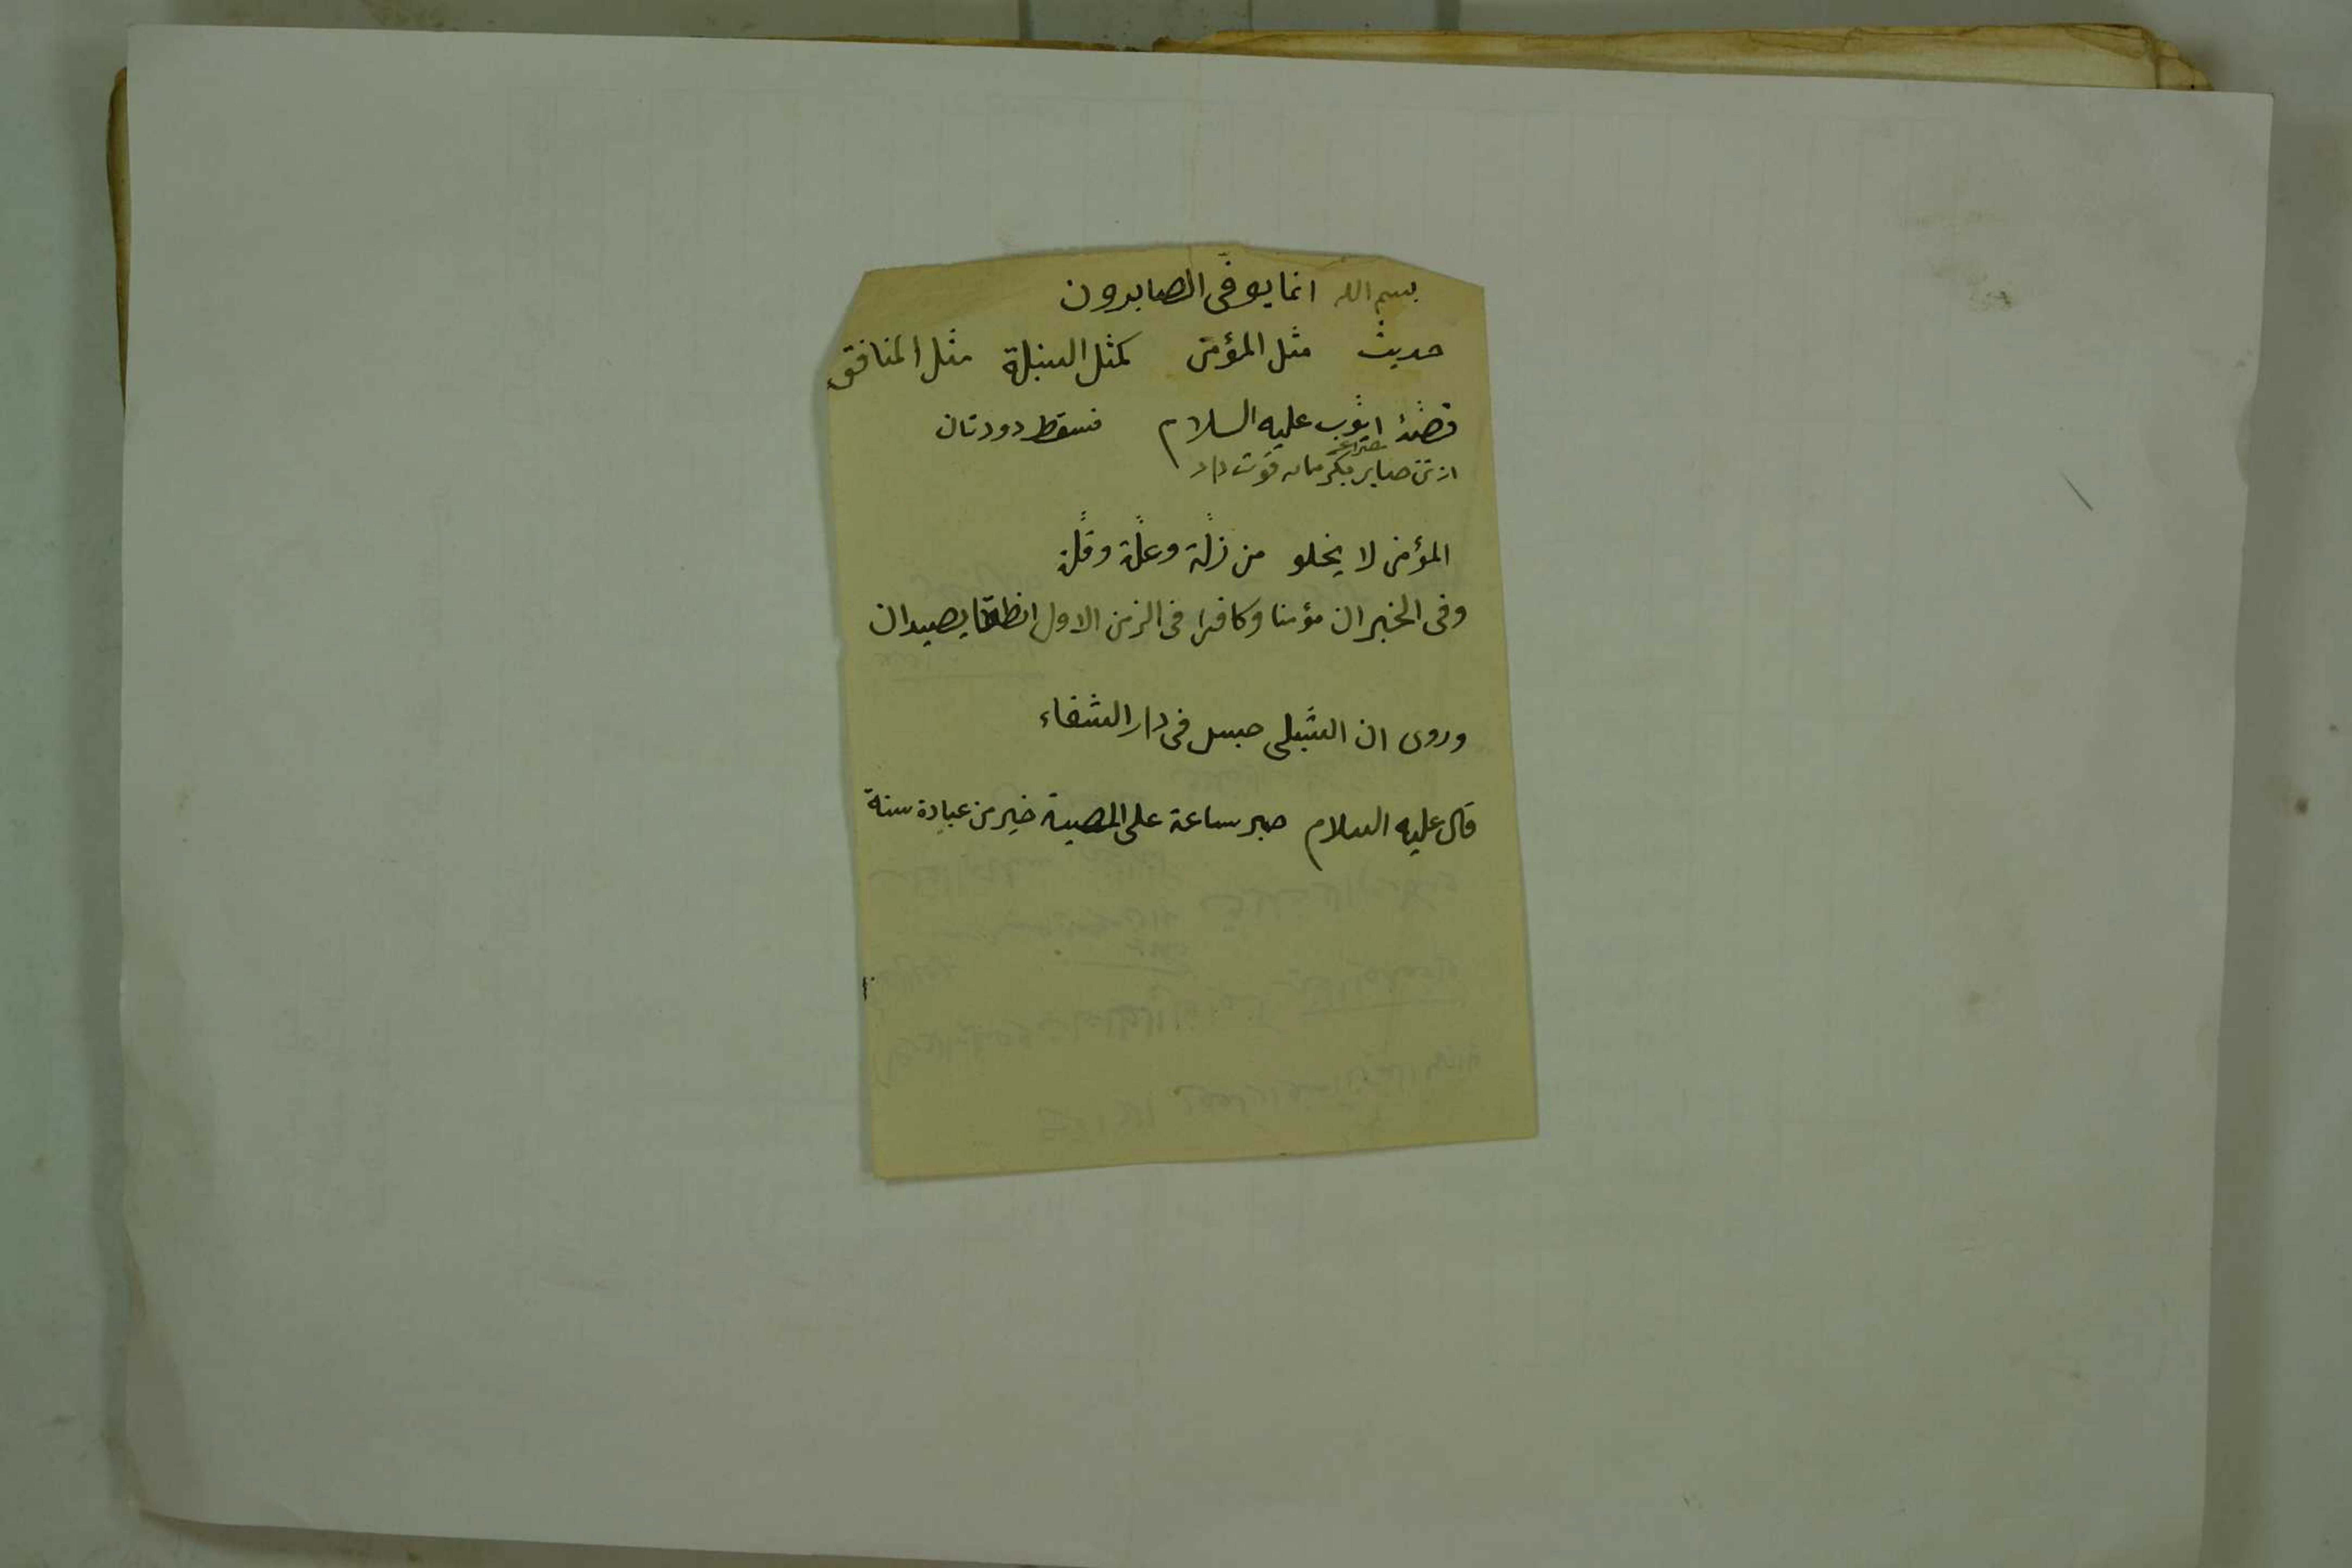 بسم الله انما يوفّى الصابرون
حديث مثل المؤمن كمثل السنبلة مثل المنافق
قصّهٔ ايّوب عليه السلام فسقط دودتان
از تن صابر بكرمان قوت داد
المؤمن لا يخلو من زلّة وعلّة وقلّة
وفى الخبر ان مؤمنا وكافرا فى الزمن الاول انطلقا يصيدان
وروى ان الشبلى حبس فى دار الشفاء
قال عليه السلام صبر ساعة على المصيبة خير من عبادة سنة